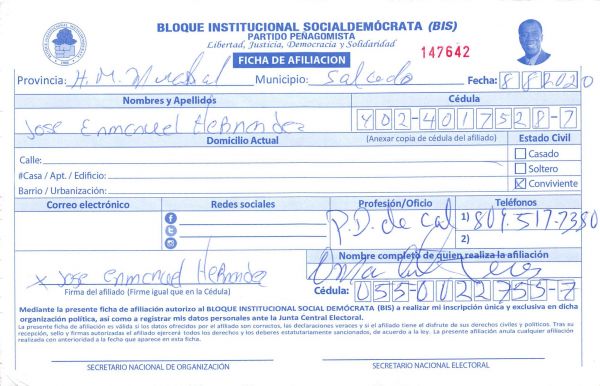 BLOQUE INSTITUCIONAL SOCIALDEMÓCRATA (BIS)
PARTIDO PEÑAGOMISTA
Libertad, Justicia, Democracia y Solidaridad
FICHA DE AFILIACION
147642
Provincia: H. M. Mirabal Municipio: Salcedo Fecha: 8 8 2020
Nombres y Apellidos Cédula
Jose Enmanuel Hernandez 402-4017528-7
Domicilio Actual (Anexar copia de cédula del afiliado) Estado Civil
Calle: Casado
#Casa / Apt. / Edificio: Soltero
Barrio / Urbanización: Conviviente
Correo electrónico Redes sociales Profesión/Oficio Teléfonos
P.D. de cal 1) 809.517-7380
2)
Nombre completo de quien realiza la afiliación
x Jose Enmanuel Hernandez
Firma del afiliado (Firme igual que en la Cédula) Cédula: 055-0022755-7
Mediante la presente ficha de afiliación autorizo al BLOQUE INSTITUCIONAL SOCIAL DEMÓCRATA (BIS) a realizar mi inscripción única y exclusiva en dicha
organización política, así como a registrar mis datos personales ante la Junta Central Electoral.
La presente ficha de afiliación es válida si los datos ofrecidos por el afiliado son correctos, las declaraciones veraces y si el afiliado tiene el disfrute de sus derechos civiles y políticos. Tras su
recepción, sello y firmas autorizadas el afiliado ejercerá todos los derechos y los deberes estatutariamente sancionados, de acuerdo a la ley. La presente afiliación anula cualquier afiliación
realizada con anterioridad a la fecha que aparece en esta ficha.
SECRETARIO NACIONAL DE ORGANIZACIÓN SECRETARIO NACIONAL ELECTORAL